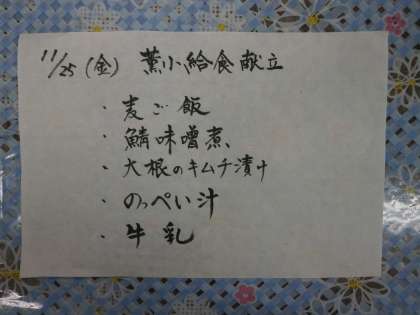 11/25(金) 薫小給食献立
・麦ご飯
・鯖味噌煮
・大根のキムチ漬け
・のっぺい汁
・牛乳